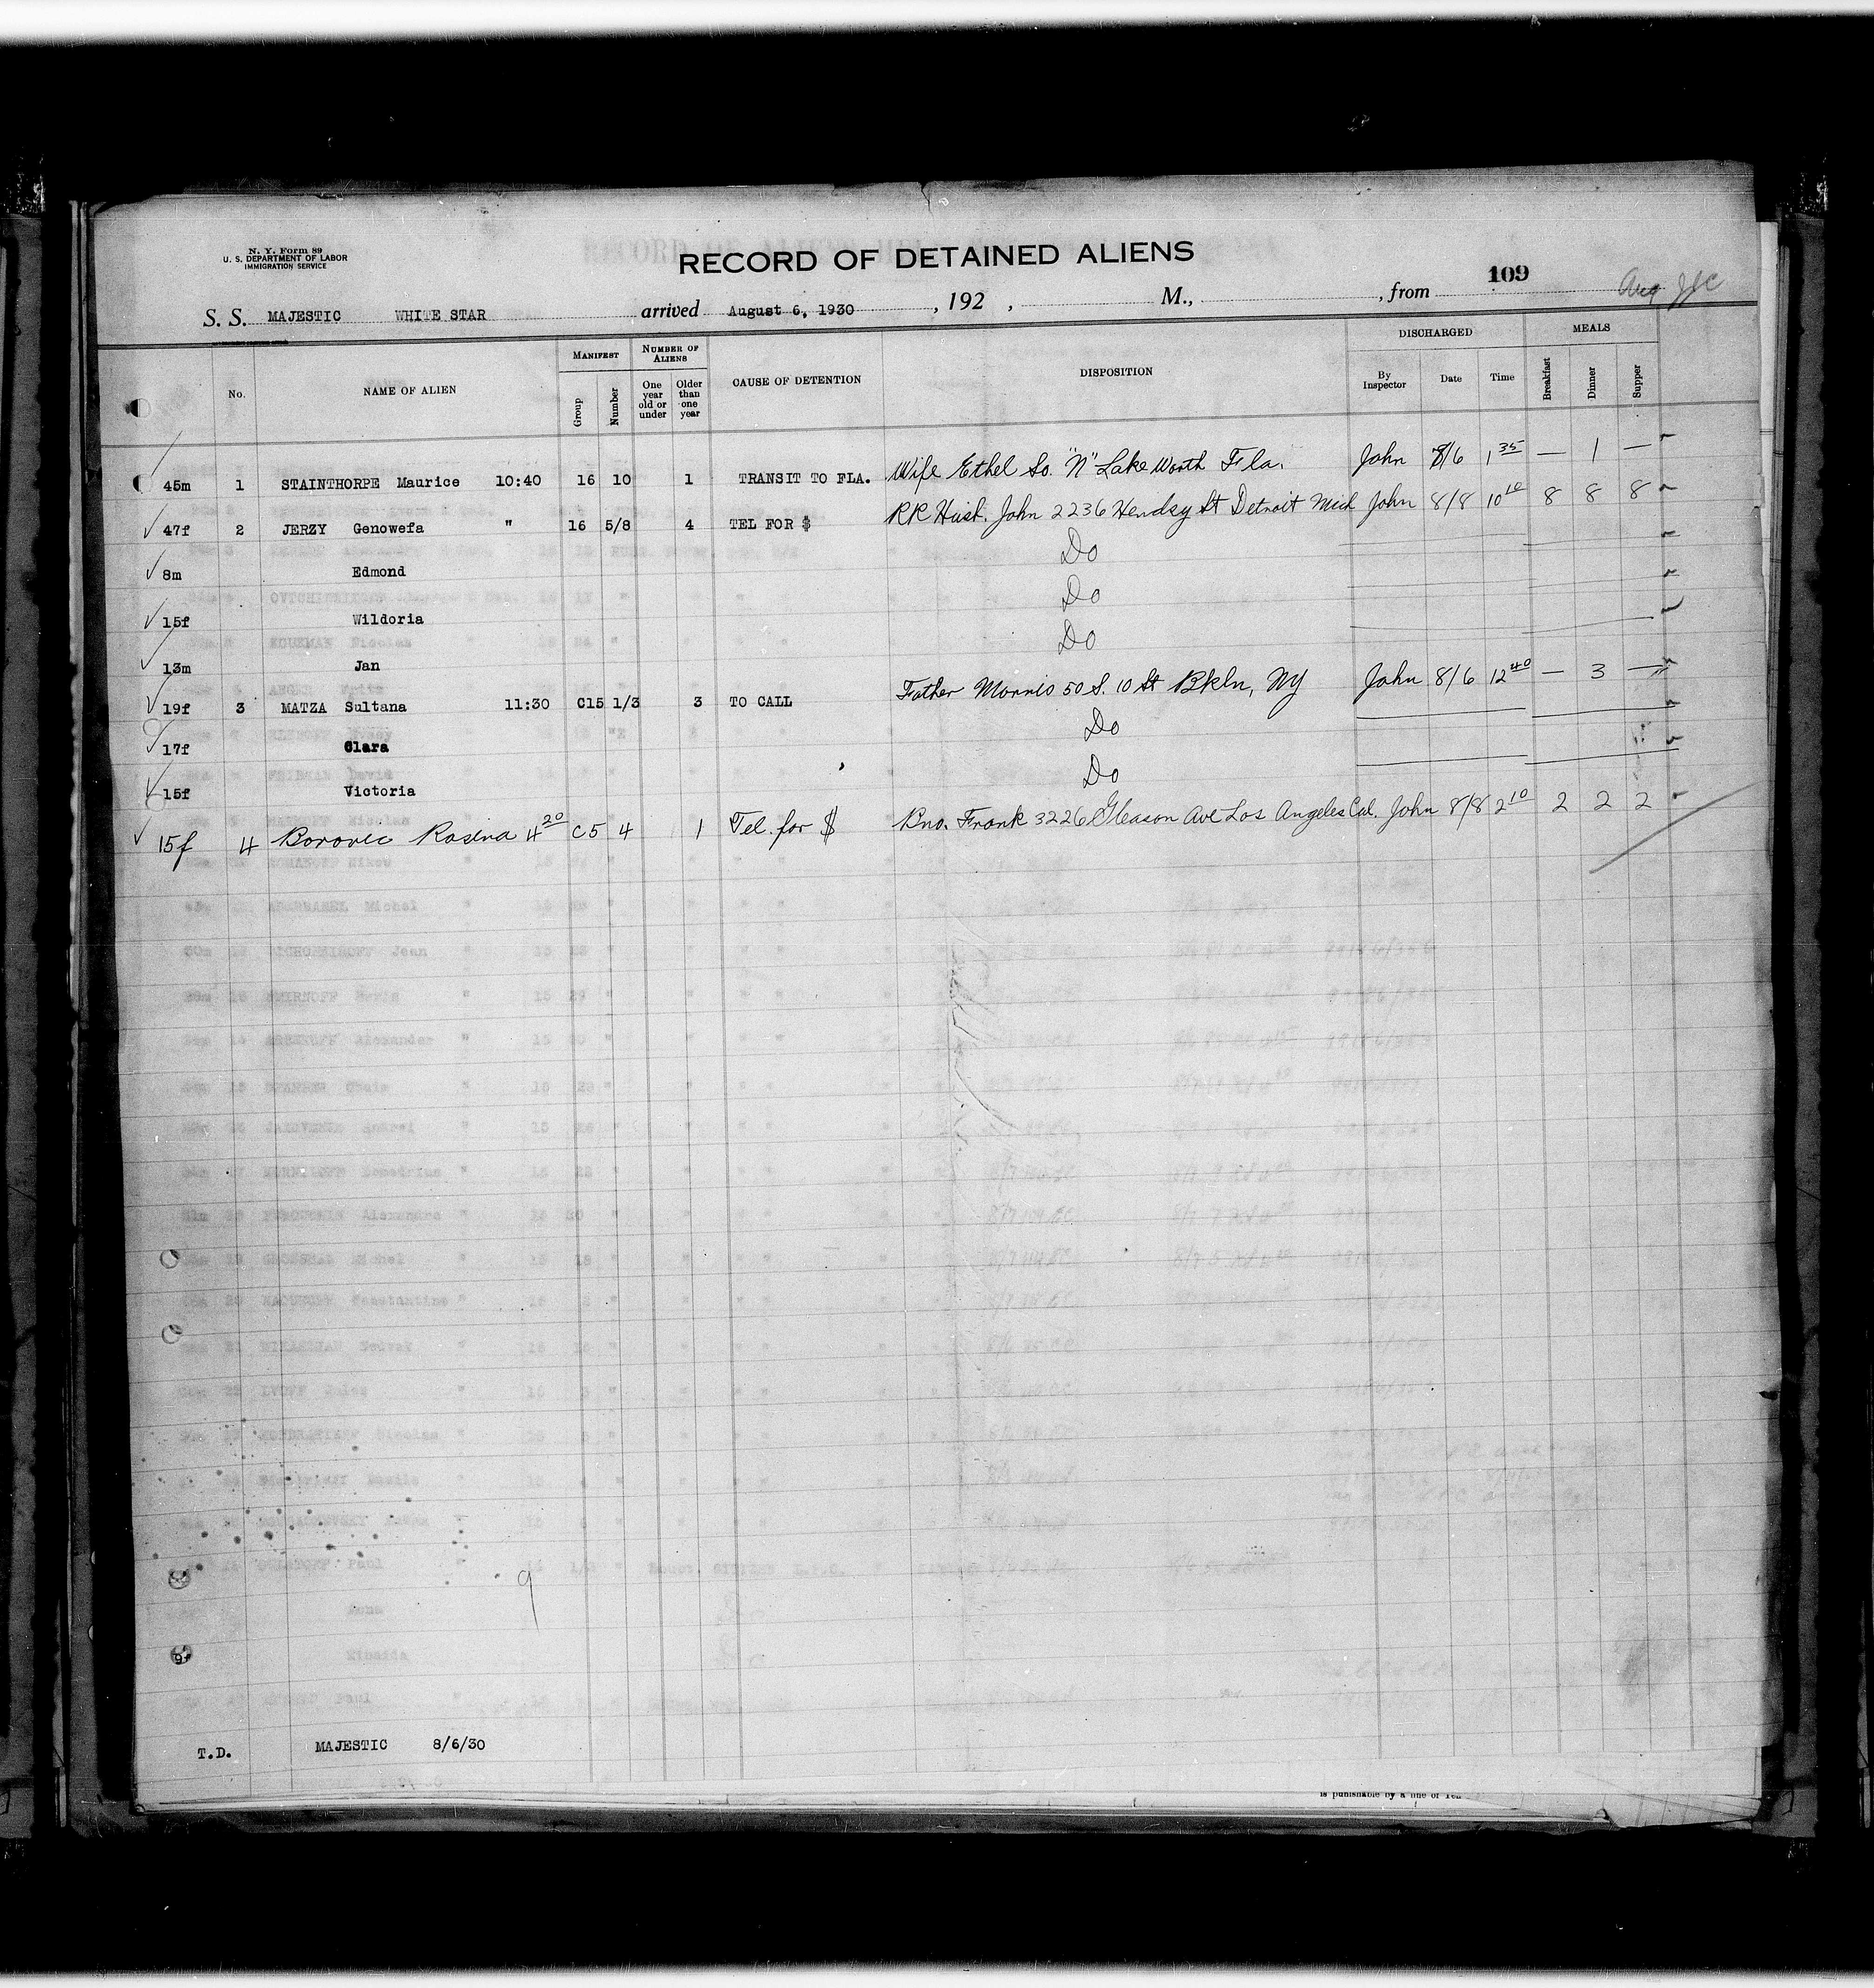 N. Y. Form 89
U. S. DEPARTMENT OF LABOR
IMMIGRATION SERVICE
RECORD OF DETAINED ALIENS
109
S. S. MAJESTIC WHITE STAR arrived August 6, 1930, 192 , M., , from
No. NAME OF ALIEN MANIFEST Group Number NUMBER OF ALIENS One year old or under Older than one year CAUSE OF DETENTION DISPOSITION DISCHARGED By Inspector Date Time MEALS Breakfast Dinner Supper
45m 1 STAINTHORPE Maurice 10:40 16 10 1 TRANSIT TO FLA. Wife Ethel So. "N" Lake Worth Fla. John 8/6 1 35 — 1 —
47f 2 JERZY Genowefa " 16 5/8 4 TEL FOR $ RR Husb. John 2236 St Detroit Mich John 8/8 10 10 8 8 8
8m Edmond Do
15f Wildoria Do
13m Jan Do
19f 3 MATZA Sultana 11:30 C15 1/3 3 TO CALL Father Morris 50 S. 10 St Bkln, NY John 8/6 12 40 — 3 —
17f Clara Do
15f Victoria Do
15f 4 Borovic Rosina 4 20 C5 4 1 Tel. for $ Bro. Frank 3226 Gleason Ave Los Angeles Cal. John 8/8 2 10 2 2 2
9
T.D. MAJESTIC 8/6/30